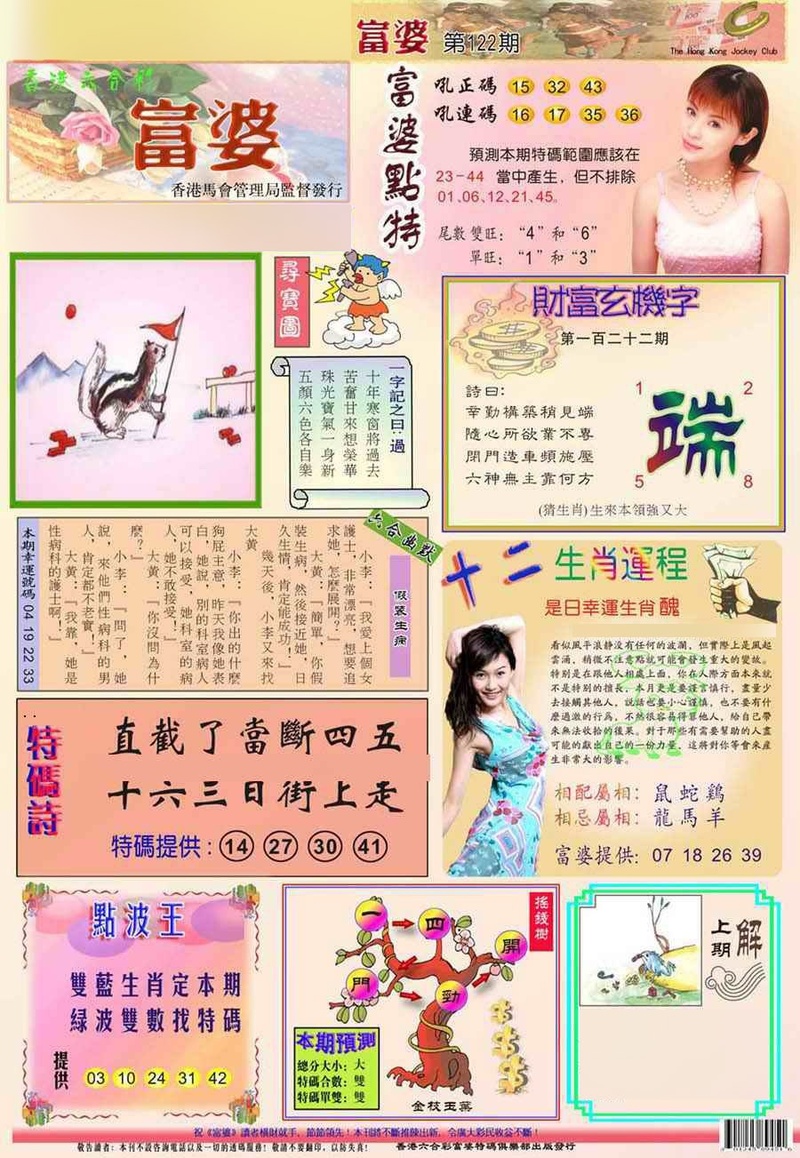 富婆 第122期
The Hong Kong Jockey Club
香港六合彩
富婆
香港馬會管理局監督發行
富婆點特
吼正碼 15 32 43
吼連碼 16 17 35 36
預測本期特碼範圍應該在
23-44 當中產生，但不排除
01.06.12.21.45。
尾數雙旺：“4”和“6”
單旺：“1”和“3”
尋寶圖
一字記之曰：過
十年寒窗將過去
苦奮甘來想榮華
珠光寶氣一身新
五顏六色各自樂
財富玄機字
第一百二十二期
詩曰：
幸勤構築稍見端
隨心所欲業不專
閉門造車頻施壓
六神無主靠何方
1 2
端
5 8
(猜生肖)生來本領強又大
六合幽默
假裝生病
小李：『我愛上個女
護士，非常漂亮，想要追
求她，怎麼展開？』
大黃：『簡單，你假
裝生病，然後接近她，日
久生情，肯定能成功！』
幾天後，小李又來找
大黃
小李：『你出的什麼
狗屁主意，昨天我像她表
白，她說，別的科室病人
可以接受，她科室的病
人，她不敢接受。』
大黃：『你沒問為什
麼？』
小李：『問了，她
說，來他們性病科的男
人，肯定都不老實！』
大黃：『我靠，她是
性病科的護士啊！』
本期幸運號碼 04 19 22 33
十二生肖運程
是日幸運生肖 醜
看似風平浪靜沒有任何的波瀾，但實際上是風起
雲涌，稍微不注意點就可能會發生重大的變故。
特別是在跟他人相處上面，你在人際方面本來就
不是特別的擅長，本月更是要謹言慎行，盡量少
去接觸其他人，說話也要小心謹慎，也不要有什
麼過激的行爲，不然很容易得罪他人，給自己帶
來無法收拾的後果。對于那些有需要幫助的人盡
可能的獻出自己的一份力量，這將對你等會來產
生非常大的影響。
相配屬相：鼠蛇鷄
相忌屬相：龍馬羊
富婆提供：07 18 26 39
特碼詩
直截了當斷四五
十六三日街上走
特碼提供：14 27 30 41
點波王
雙藍生肖定本期
綠波雙數找特碼
提供
03 10 24 31 42
搖錢樹
一 四 開
門 勁
本期預測
總分大小：大
特碼合數：雙
特碼單雙：雙
金枝玉葉
上期解
祝《富婆》讀者橫財就手，節節領先！本刊將不斷推陳出新，令廣大彩民收益不斷！
敬告讀者：本刊不設咨詢電話以及一切的透碼服務！敬請不要翻印，以防失真！ 香港六合彩富婆特碼俱樂部出版發行